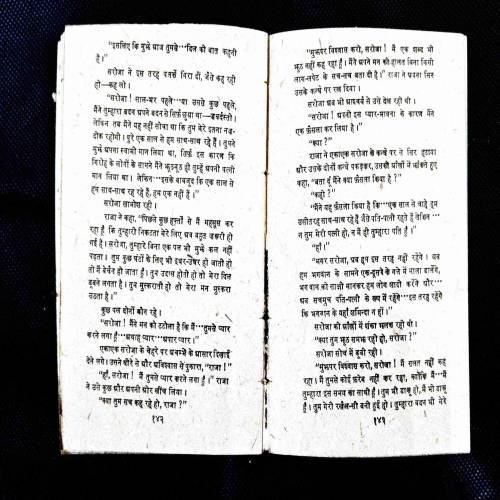 "इसलिए कि मुझे आज तुमसे···दिल की बात कहनी
है।"
सरोजा ने इस तरह पलकें गिरा दीं, जैसे कह रही
हो—कह लो।
"सरोजा ! साल-भर पहले···या उससे कुछ पहले,
मैंने तुम्हारा बदन अपने बदन से सिर्फ़ छुआ था—ज़बर्दस्ती।
लेकिन तब मैंने यह नहीं सोचा था कि तुम मेरे इतना नज़-
दीक रहोगी। पूरे एक साल से हम साथ-साथ रहे हैं। तुमने
मुझे अपना स्वामी मान लिया था, सिर्फ़ इस कारण कि
गिरोह के लोगों के सामने मैंने झूठमूठ ही तुम्हें अपनी पत्नी
मान लिया था। लेकिन···इसके बावजूद कि एक साल से
हम साथ-साथ रह रहे हैं, हम एक नहीं हैं।"
सरोजा खामोश रही।
राजा ने कहा, "पिछले कुछ हफ़्तों से मैं महसूस कर
रहा हूँ कि तुम्हारी निकटता मेरे लिए अब बहुत ज़रूरी हो
गई है। सरोजा, तुम्हारे बिना एक पल भी मुझे कल नहीं
पड़ता। तुम कुछ घंटों के लिए भी इधर-उधर हो जाती हो
तो मैं बेचैन हो जाता हूँ। तुम उदास होती हो तो मेरा दिल
डूबने लगता है। तुम मुस्कराती हो तो मेरा मन मुस्करा
उठता है।"
कुछ पल दोनों मौन रहे।
"सरोजा ! मैंने मन को टटोला है कि मैं···तुमसे प्यार
करने लगा हूँ···अथाह प्यार···अपार प्यार।"
एकाएक सरोजा के चेहरे पर अचम्भे के आसार दिखाई
देने लगे। उसने धीरे से और अविश्वास से पुकारा, "राजा !"
"हाँ, सरोजा ! मैं तुमसे प्यार करने लगा हूँ।" राजा
ने उसे कुछ और अपनी ओर खींच लिया।
"क्या तुम सच कह रहे हो, राजा ?"
१४२
"मुझपर विश्वास करो, सरोजा ! मैं एक शब्द भी
झूठ नहीं कह रहा हूँ। मैंने अपने मन की हालत बिना किसी
लाग-लपेट के सच-सच बता दी है।" राजा ने अपना सिर
उसके कन्धे पर रख दिया।
सरोजा अब भी आश्चर्य से उसे देख रही थी।
"सरोजा ! अपनी इस प्यार-भावना के कारण मैंने
एक फ़ैसला कर लिया है।"
"क्या ?"
राजा ने एकाएक सरोजा के कन्धे पर से सिर हटाया
और उसके दोनों कन्धे पकड़कर, उसकी आँखों में झाँकते हुए
कहा, "बता दूँ मैंने क्या फ़ैसला किया है ?"
"कहो ?"
"मैंने यह फ़ैसला किया है कि···एक साल से चाहे हम
उसीतरह साथ-साथ रहे हैं जैसे पति-पत्नी रहते हैं लेकिन···
न तुम मेरी पत्नी हो, न मैं ही तुम्हारा पति हूँ।"
"हाँ।"
"मगर सरोजा, अब हम इस तरह नहीं रहेंगे। अब
हम भगवान के सामने एक-दूसरे के गले में माला डालेंगे,
भगवान को साक्षी मानकर हम लोग शादी करेंगे और···
अब सचमुच पति-पत्नी के रूप में रहेंगे···इस तरह रहेंगे
कि भगवान के यहाँ शर्मिन्दा न हों।"
सरोजा की आँखों में शंका झलक रही थी।
"क्या तुम झूठ समझ रही हो, सरोजा ?"
सरोजा सोच में डूबी रही।
"मुझपर विश्वास करो, सरोजा ! मैं ग़लत नहीं कह
रहा। मैं तुमसे कोई फ़रेब नहीं कर रहा, क्योंकि मैं···मैं
तुम्हारा इस समय का साथी हूँ। तुम भी डाकू हो, मैं भी डाकू
हूँ। तुम मेरी रखैल-सी बनी हुई हो। तुम्हारा बदन भी मेरे
१४३